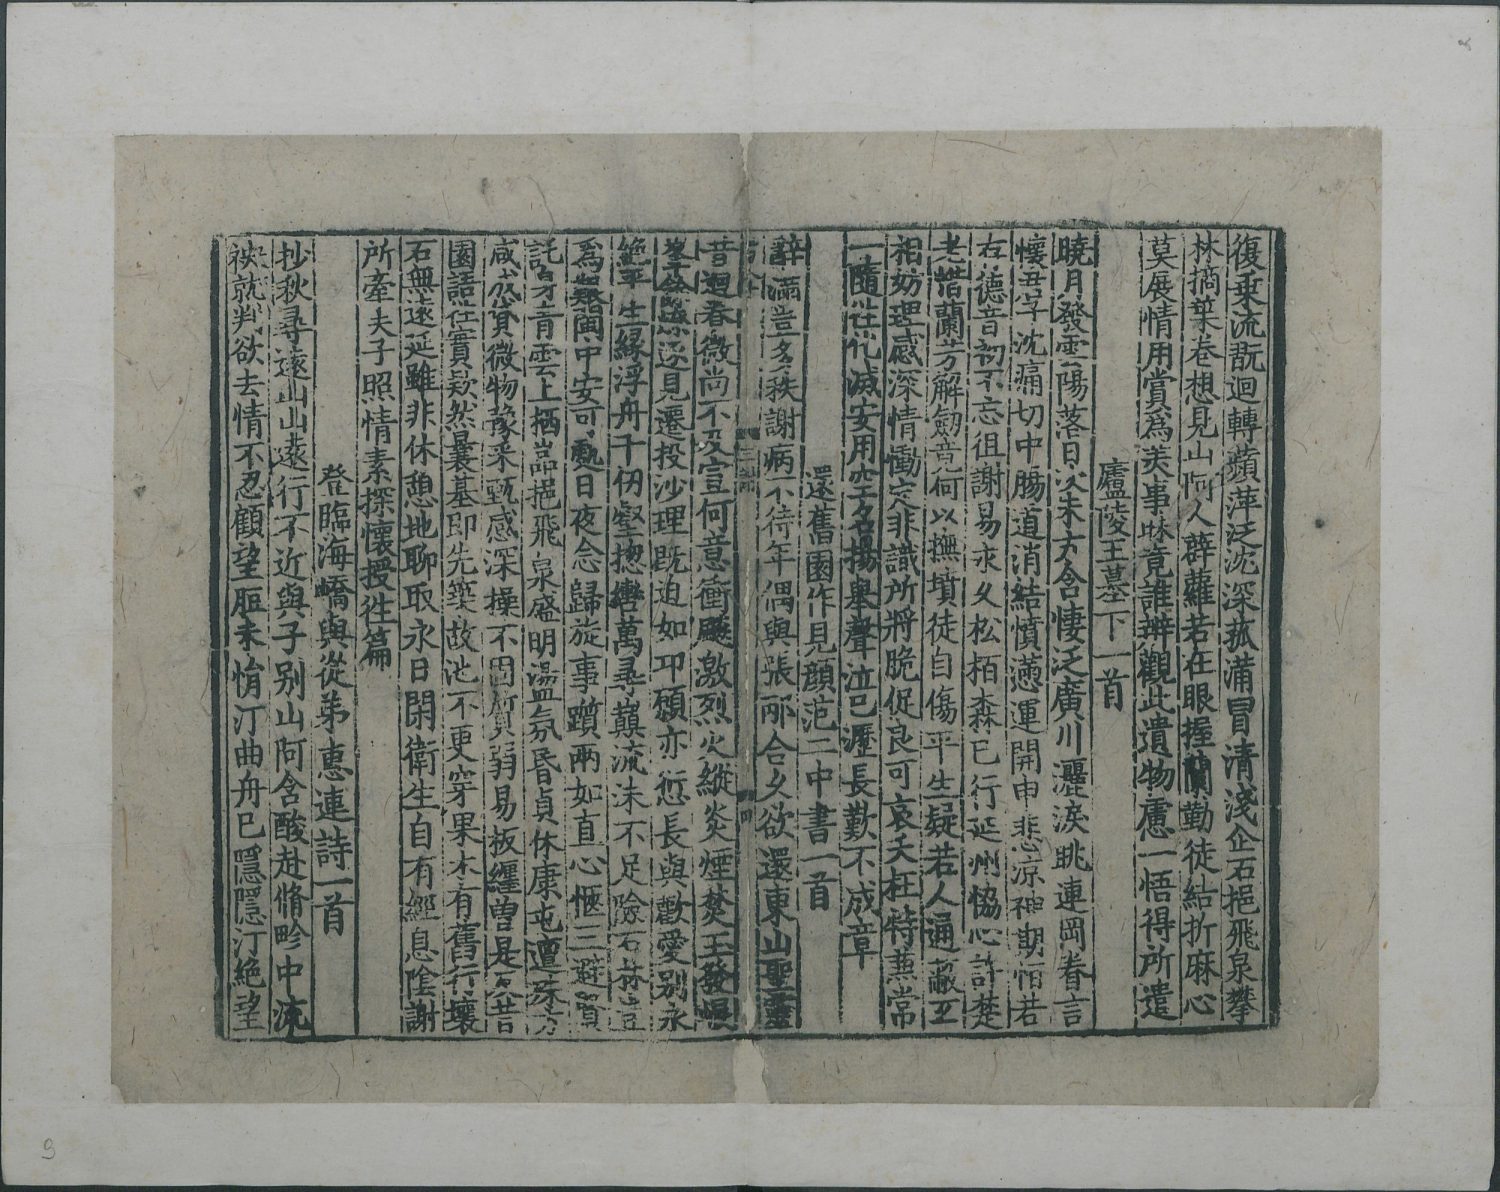 復乗流翫迴轉蘋萍泛沈深菰蒲冒清淺企石挹飛泉攀
林摘葉卷想見山阿人薜蘿若在眼握蘭勤徒結折麻心
莫展情用賞為美事昧竟誰辨觀此遺物慮一悟得所遣
廬陵王墓下一首
曉月發雲陽落日次朱方含悽泛廣川灑淚眺連岡眷言
懷君子沈痛切中腸道消結憤懣運開申悲凉神期恒若
在德音初不忘徂謝易永久松栢森已行延州恊心許楚
老惜蘭芳解劒竟何以撫墳徒自傷平生疑若人通蔽互
相妨理感深情慟定非識所將脆促良可哀夭枉特兼常
一隨往化滅安用空名揚舉聲泣已瀝長歎不成章
還舊園作見顏范二中書一首
辭滿豈多秩謝病不待年偶與張邴合久欲還東山聖靈
昔迴眷微尚不及宣何意衝飈激烈火縱炎煙焚玉發崐
峯餘燎遂見遷投沙理既迫如卭願亦愆長與懽愛別永
絶平生縁浮舟千仞壑揔轡萬尋巔流沫不足險石林豈
為艱閩中安可處日夜念歸旋事躓兩如直心愜三避賢
託身青雲上栖巖挹飛泉盛明盪氛昏貞休康屯邅殊方
咸成貸微物豫采甄感深操不固質弱易板纏曽是反昔
園語往實款然曩基即先築故池不更穿果木有舊行壤
石無遠延雖非休憩地聊取永日閑衛生自有經息陰謝
所牽夫子照情素探懷授往篇
登臨海嶠與從弟惠連詩一首
抄秋尋遠山山遠行不近與子別山阿含酸赴脩畛中流
袂就判欲去情不忍顧望脰未悁汀曲舟已隱隱汀絶望
三
四
9